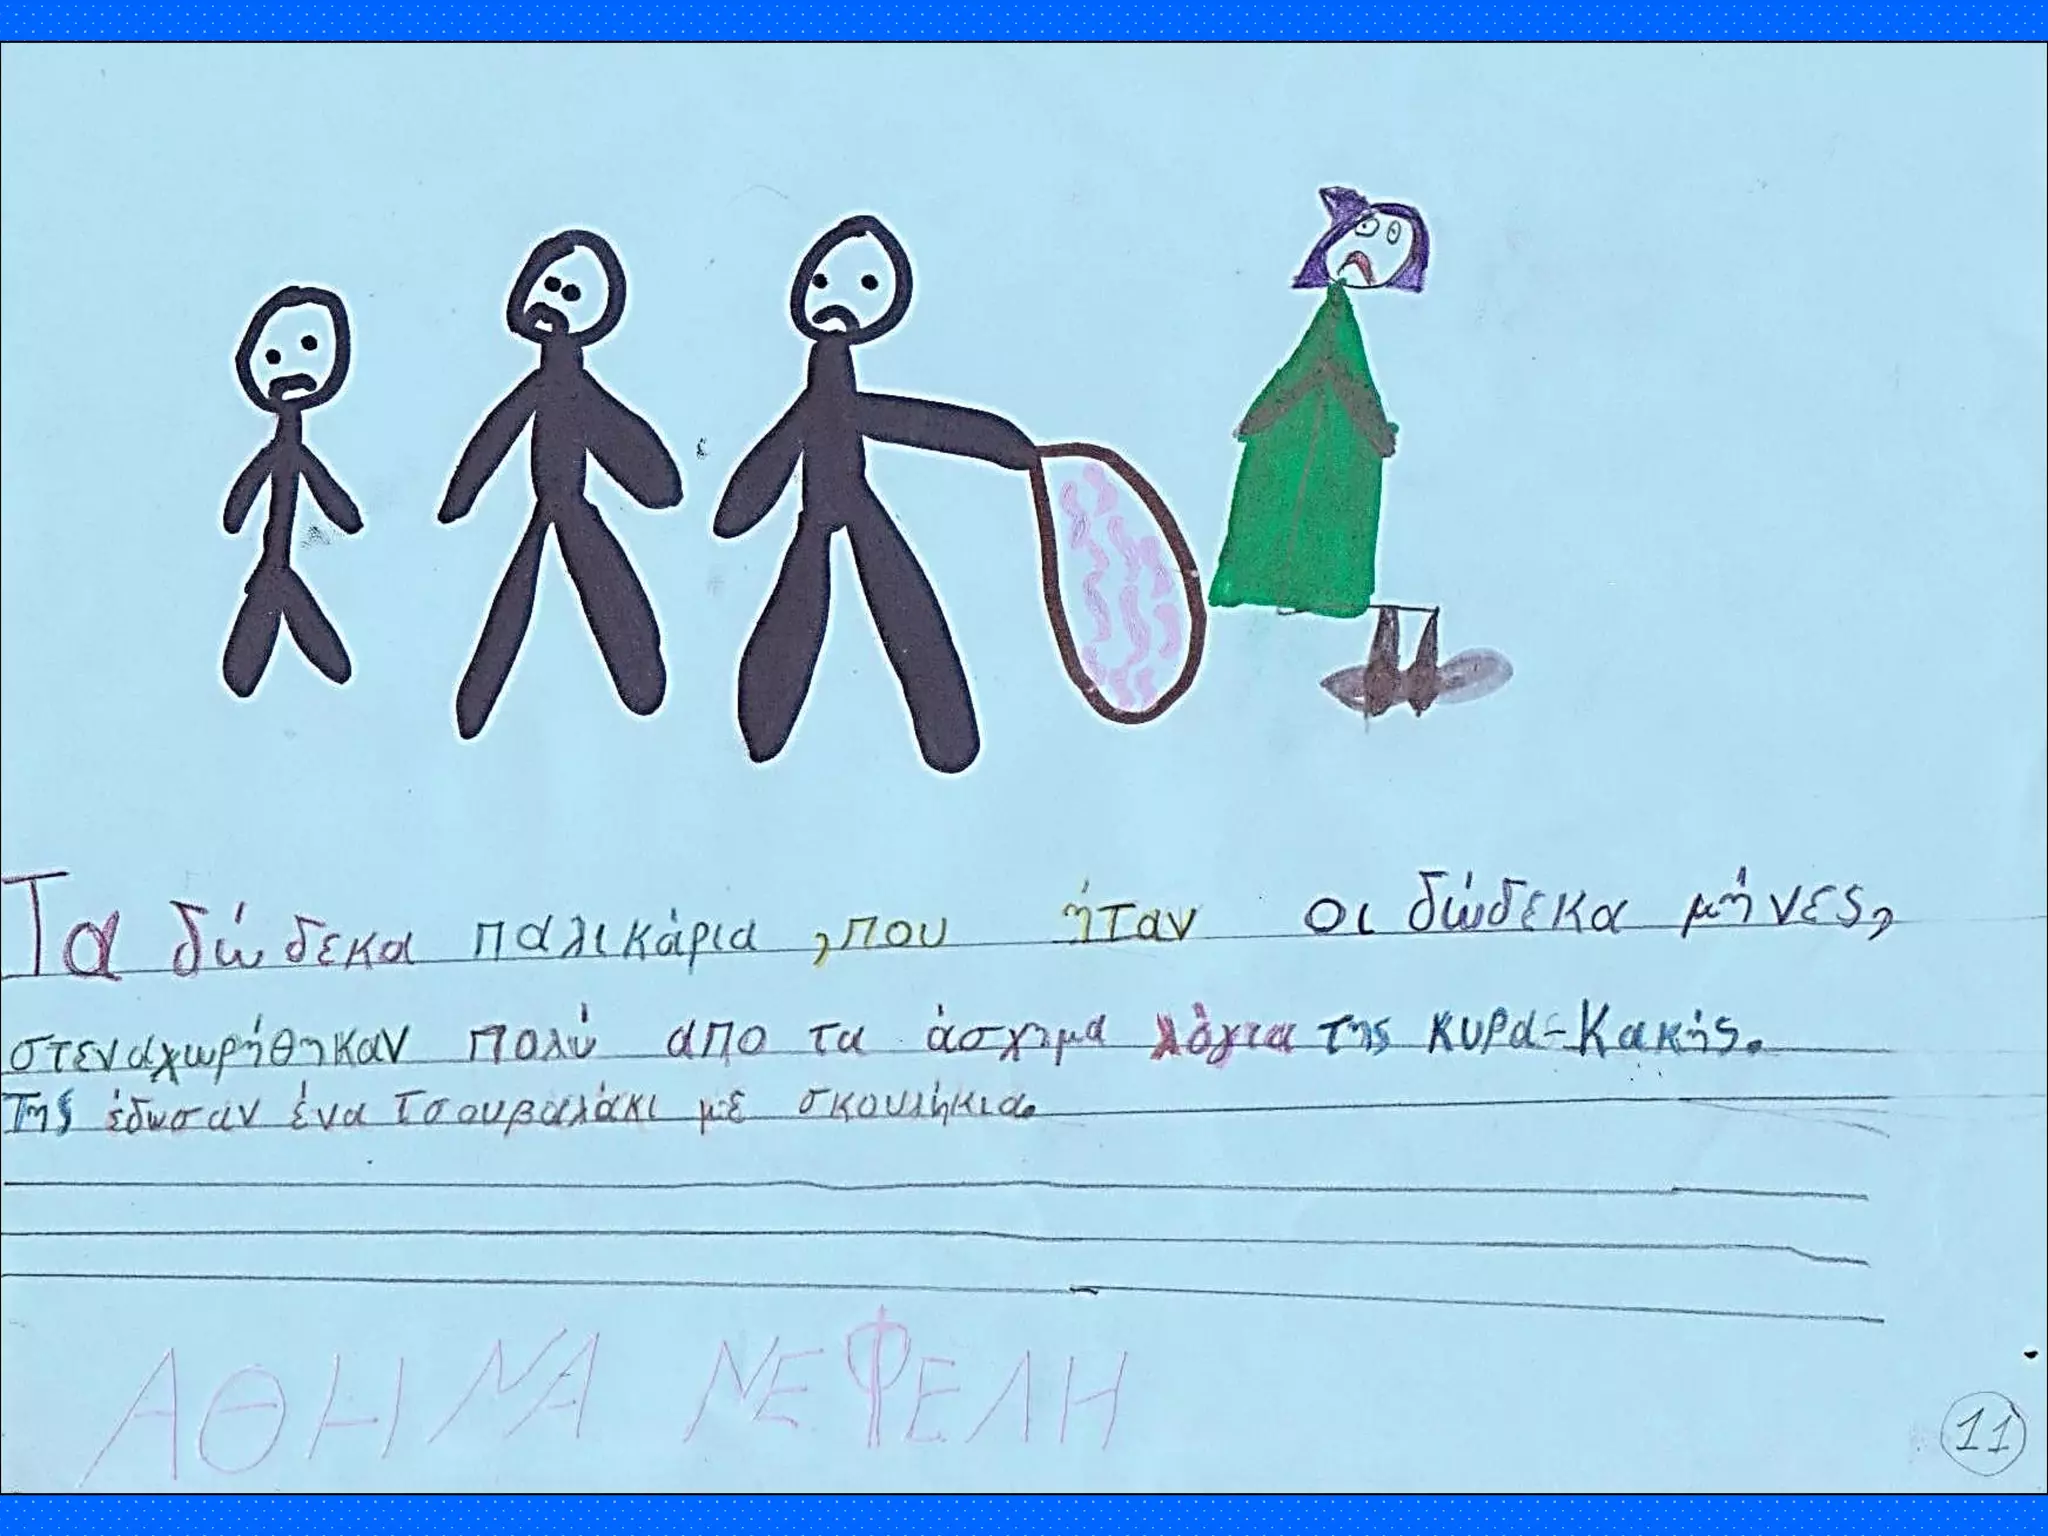 Τα δώδεκα παλικάρια ,που ήταν οι δώδεκα μήνες,
στεναχωρήθηκαν πολύ απο τα άσχημα λόγια της κυρα-Κακής.
Της έδωσαν ένα τσουβαλάκι με σκουλήκια.
ΑΘΗΝΑ ΝΕΦΕΛΗ
11